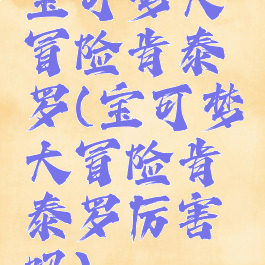 宝可梦大
冒险肯泰
罗(宝可梦
大冒险肯
泰罗厉害
吗)